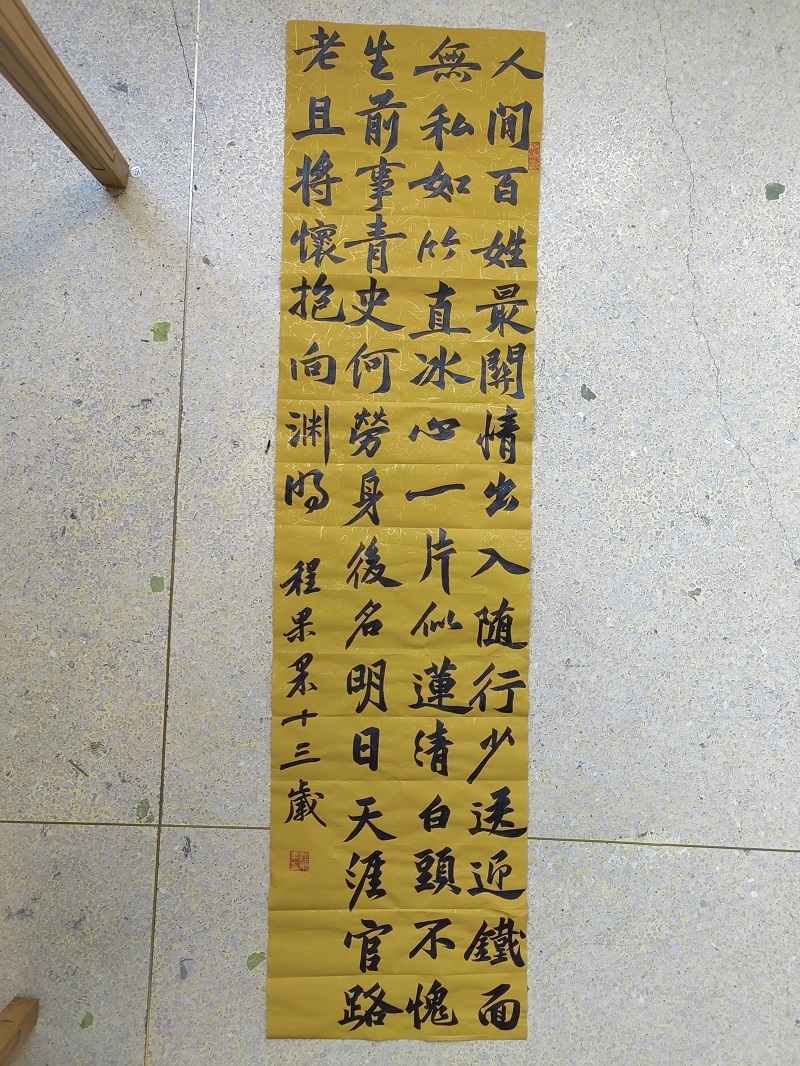 人間百姓最關情出入随行少送迎鐵面
無私如竹直冰心一片似蓮清白頭不愧
生前事青史何勞身後名明日天涯官路
老且將懷抱向淵明
程果果十三歲